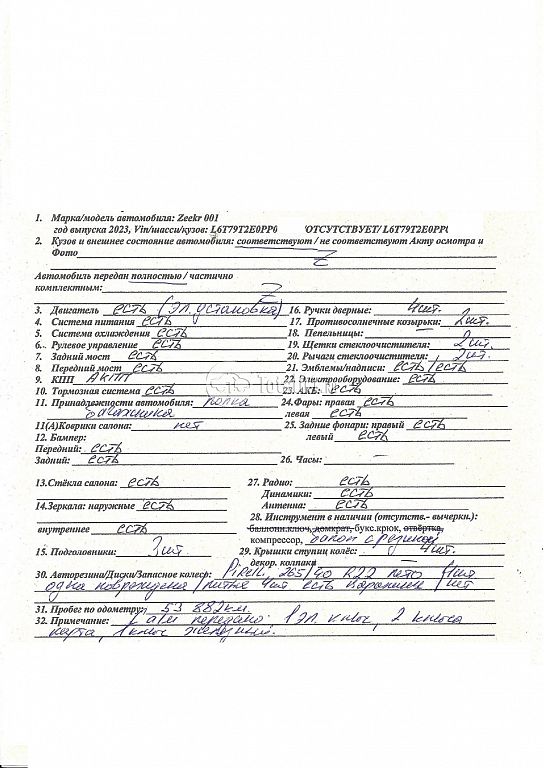 1. Марка/модель автомобиля: Zeekr 001
год выпуска 2023, Vin/шасси/кузов: L6T79T2E0PP0 /ОТСУТСТВУЕТ/ L6T79T2E0PP
2. Кузов и внешнее состояние автомобиля: соответствуют / не соответствуют Акту осмотра и
Фото
Автомобиль передан полностью / частично
комплектным:
3. Двигатель есть (эл. установка) 16. Ручки дверные: 4шт.
4. Система питания есть 17. Противосолнечные козырьки: 2шт.
5. Система охлаждения есть 18. Пепельницы: —
6. Рулевое управление есть 19. Щетки стеклоочистителя: 2шт.
7. Задний мост есть 20. Рычаги стеклоочистителя: 2шт.
8. Передний мост есть 21. Эмблемы/надписи: есть/есть
9. КПП АКПП 22. Электрооборудование: есть
10. Тормозная система есть 23. АКБ: есть
11. Принадлежности автомобиля: полка 24.Фары: правая есть
багажника левая есть
11(А)Коврики салона: нет 25. Задние фонари: правый есть
12. Бампер: левый есть
Передний: есть
Задний: есть 26. Часы: —
13.Стёкла салона: есть 27. Радио: есть
Динамики: есть
14.Зеркала: наружные есть Антенна: есть
28. Инструмент в наличии (отсутств.- вычеркн.):
внутреннее есть баллонн.ключ, домкрат, букс.крюк, отвёртка,
компрессор,
15. Подголовники: 3шт. 29. Крышки ступиц колёс: 4шт.
декор. колпаки —
30. Авторезина/Диски/Запасное колесо: Pirelli, 265/40 R22 лето 4шт
одна повреждена / литые 4шт есть / нет
31. Пробег по одометру: 53 882км.
32. Примечание: с а/м передано: 1 эл. ключ, 2 ключа
карта, 1 ключ